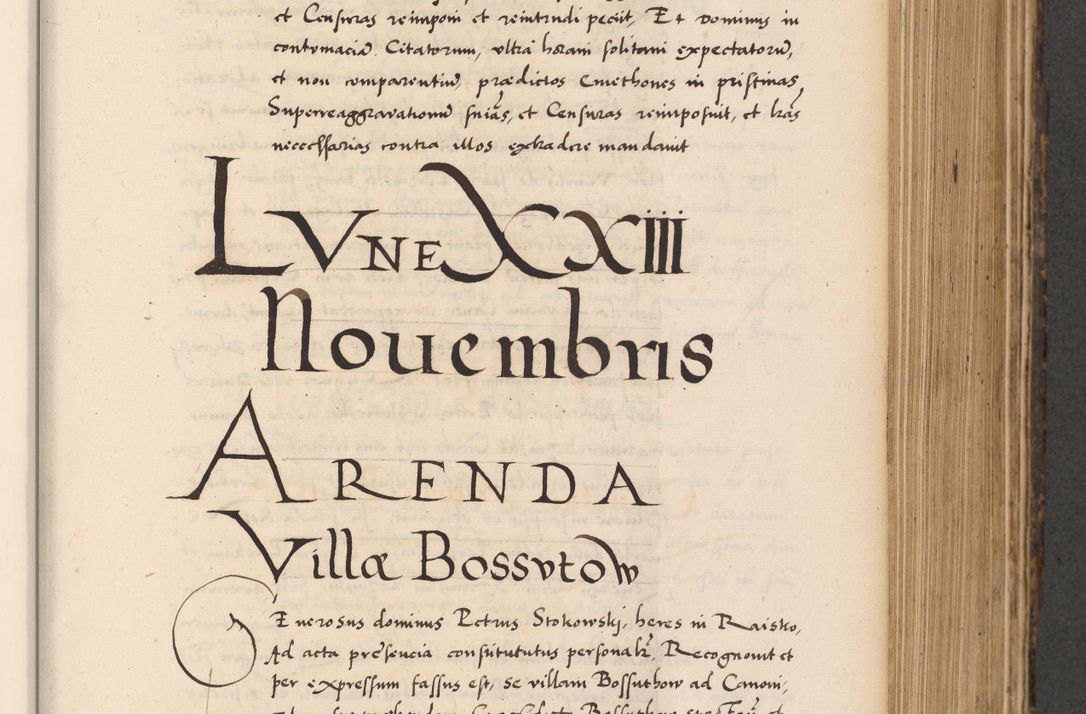 et Censuras reimponi et reintrudi peciit, Et Dominus in
contumaciã Citatorum, ultra horam solitam expectatorũ,
et non comparentiũ, prædictos Cmethones in pristinas
Superreaggravationũ sn̄ias, et Censuras reimposuit, et lr̄as
necechsarias contra illos extradere mandauit
LVNE XXIII
Nouembris
ARENDA
Villæ Bossvtow
GEnerosus dominus Petrus Stokowski, heres in Raisko,
Ad acta presencia constitututus personalr̄, Recognouit et
per expressum fassus est, se villam Bossuthow ad Canoni,